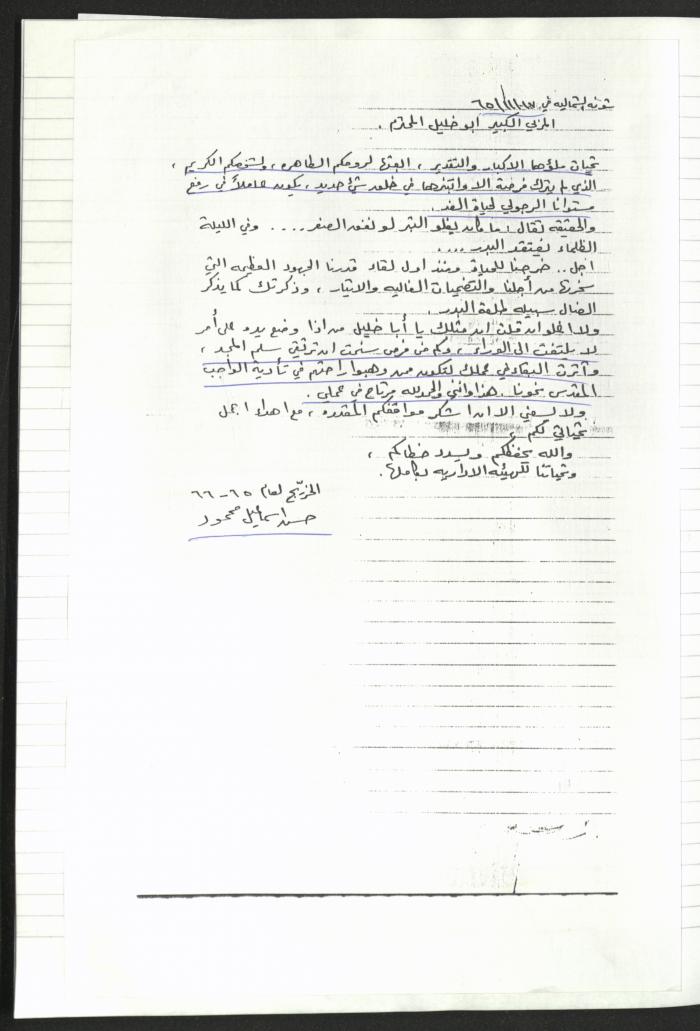 شونه الشماليه في ٦٥/١١/١٧
المربي الكبير ابو خليل المحترم .
تحيات ملؤها الاكبار والتقدير ، ابعثها لروحكم الطاهره ، ولشخصكم الكريم ،
الذي لم يترك فرصة الا وانتهزها في خلق شيء جديد ، يكون عاملاً في رفع
مستوانا الرجولي لحياة الغد .
والحقيقه تقال : ما كان يغلو التبر لو لفقد الصفر .... وفي الليلة
الظلماء يفتقد البدر ....
اجل .. خرجنا للحياة ومنذ اول لقاء قدرنا الجهود العظيمه التي
سخرتها من أجلنا والتضحيات الغاليه والايثار ، وذكرتك كما يذكر
الضال سبيله طلعة البدر .
ولا اغلو ان قلت ان مثلك يا أبا خليل من اذا وضع يده على أمر
لا يلتفت الى الوراء ، وكم من فرص سنحت ان ترتقي سلم المجد ،
وآثرت البقاء في عملك لتكون ممن وهبوا راحتهم في تأدية الواجب
المقدس نحونا . هذا وانني والحمد لله مرتاح في عملي .
ولا يسعني الا ان اشكر مواقفكم المقدره ، مع اهداء اجمل
تحياتي لكم ،
والله يحفظكم ويسدد خطاكم ،
وتحياتنا للهيئه الاداريه بكاملها .
الخريج لعام ٦٥ - ٦٦
حسن اسماعيل محمود